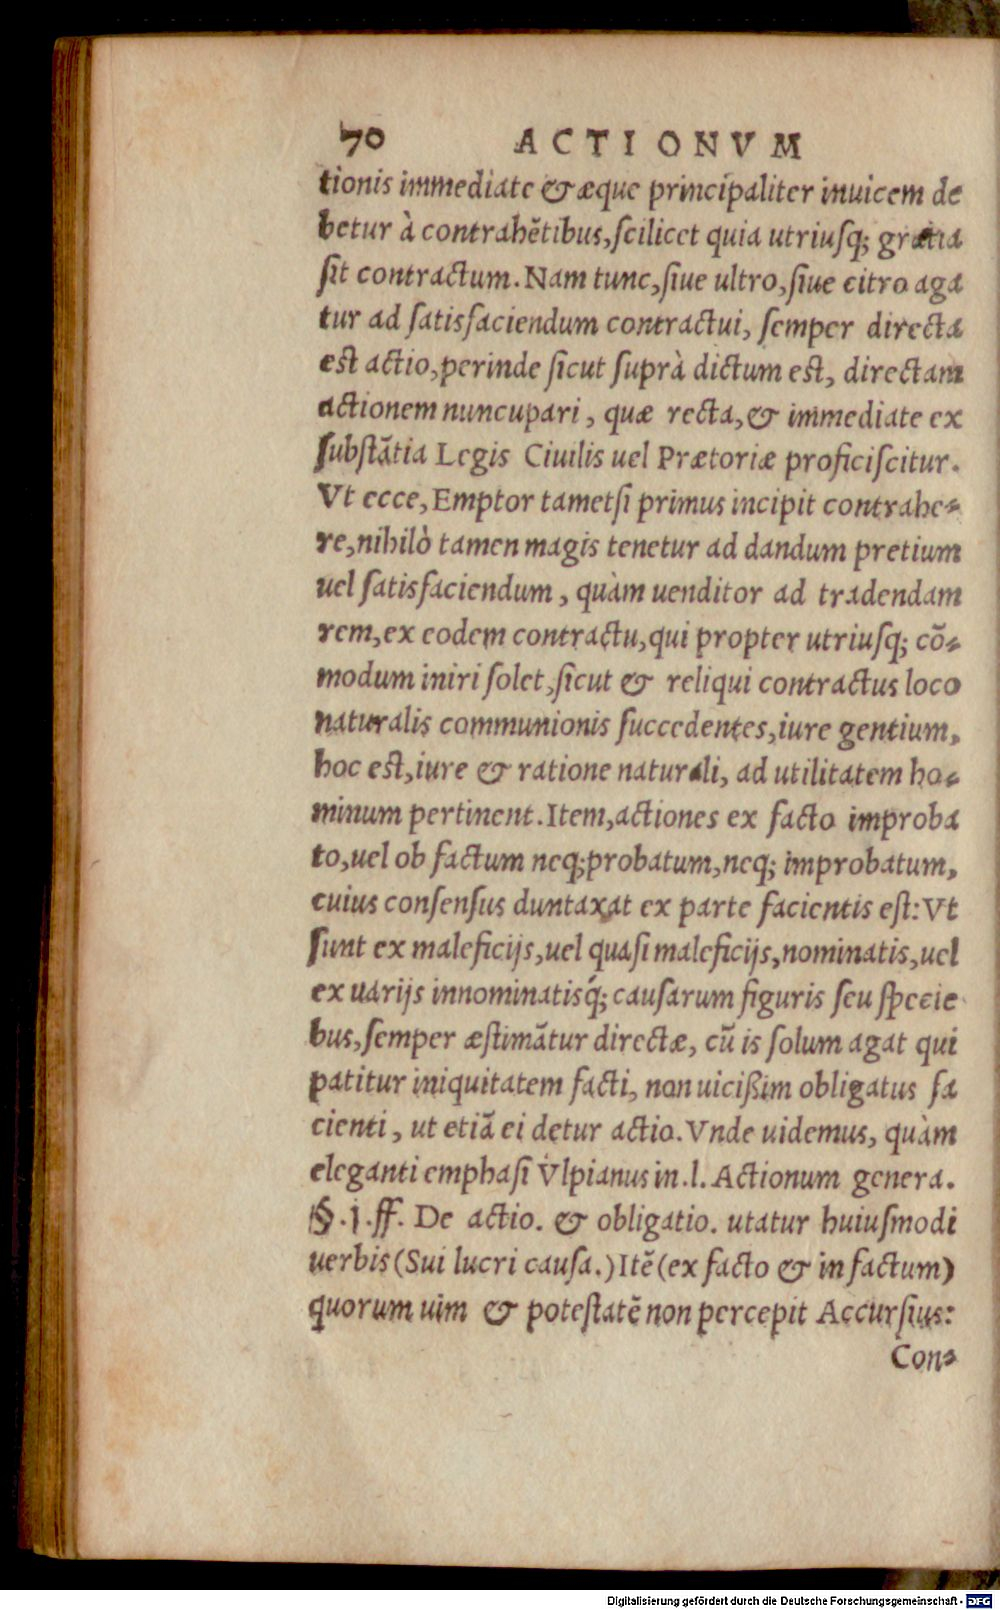 70 ACTIONVM
tionis immediate & æque principaliter inuicem de
betur à contrahẽtibus, scilicet quia utriusq; gratia
sit contractum. Nam tunc, siue ultro, siue citro aga
tur ad satisfaciendum contractui, semper directa
est actio, perinde sicut suprà dictum est, directam
actionem nuncupari, quæ recta, & immediate ex
substãtia Legis Ciuilis uel Prætoriæ proficiscitur.
Vt ecce, Emptor tametsi primus incipit contrahe-
re, nihilò tamen magis tenetur ad dandum pretium
uel satisfaciendum, quàm uenditor ad tradendam
rem, ex eodem contractu, qui propter utriusq; cõ-
modum iniri solet, sicut & reliqui contractus loco
naturalis communionis succedentes, iure gentium,
hoc est, iure & ratione naturali, ad utilitatem ho-
minum pertinent. Item, actiones ex facto improba
to, uel ob factum neq; probatum, neq; improbatum,
cuius consensus duntaxat ex parte facientis est: Vt
sunt ex maleficijs, uel quasi maleficijs, nominatis, uel
ex uarijs innominatisq́; causarum figuris seu specie
bus, semper æstimãtur directæ, cũ is solum agat qui
patitur iniquitatem facti, non uicißim obligatus fa
cienti, ut etiã ei detur actio. Vnde uidemus, quàm
eleganti emphasi Vlpianus in .l. Actionum genera.
§.j.ff. De actio. & obligatio. utatur huiusmodi
uerbis (Sui lucri causa.) Itẽ (ex facto & in factum)
quorum uim & potestatẽ non percepit Accursius:
Con-
Digitalisierung gefördert durch die Deutsche Forschungsgemeinschaft - DFG